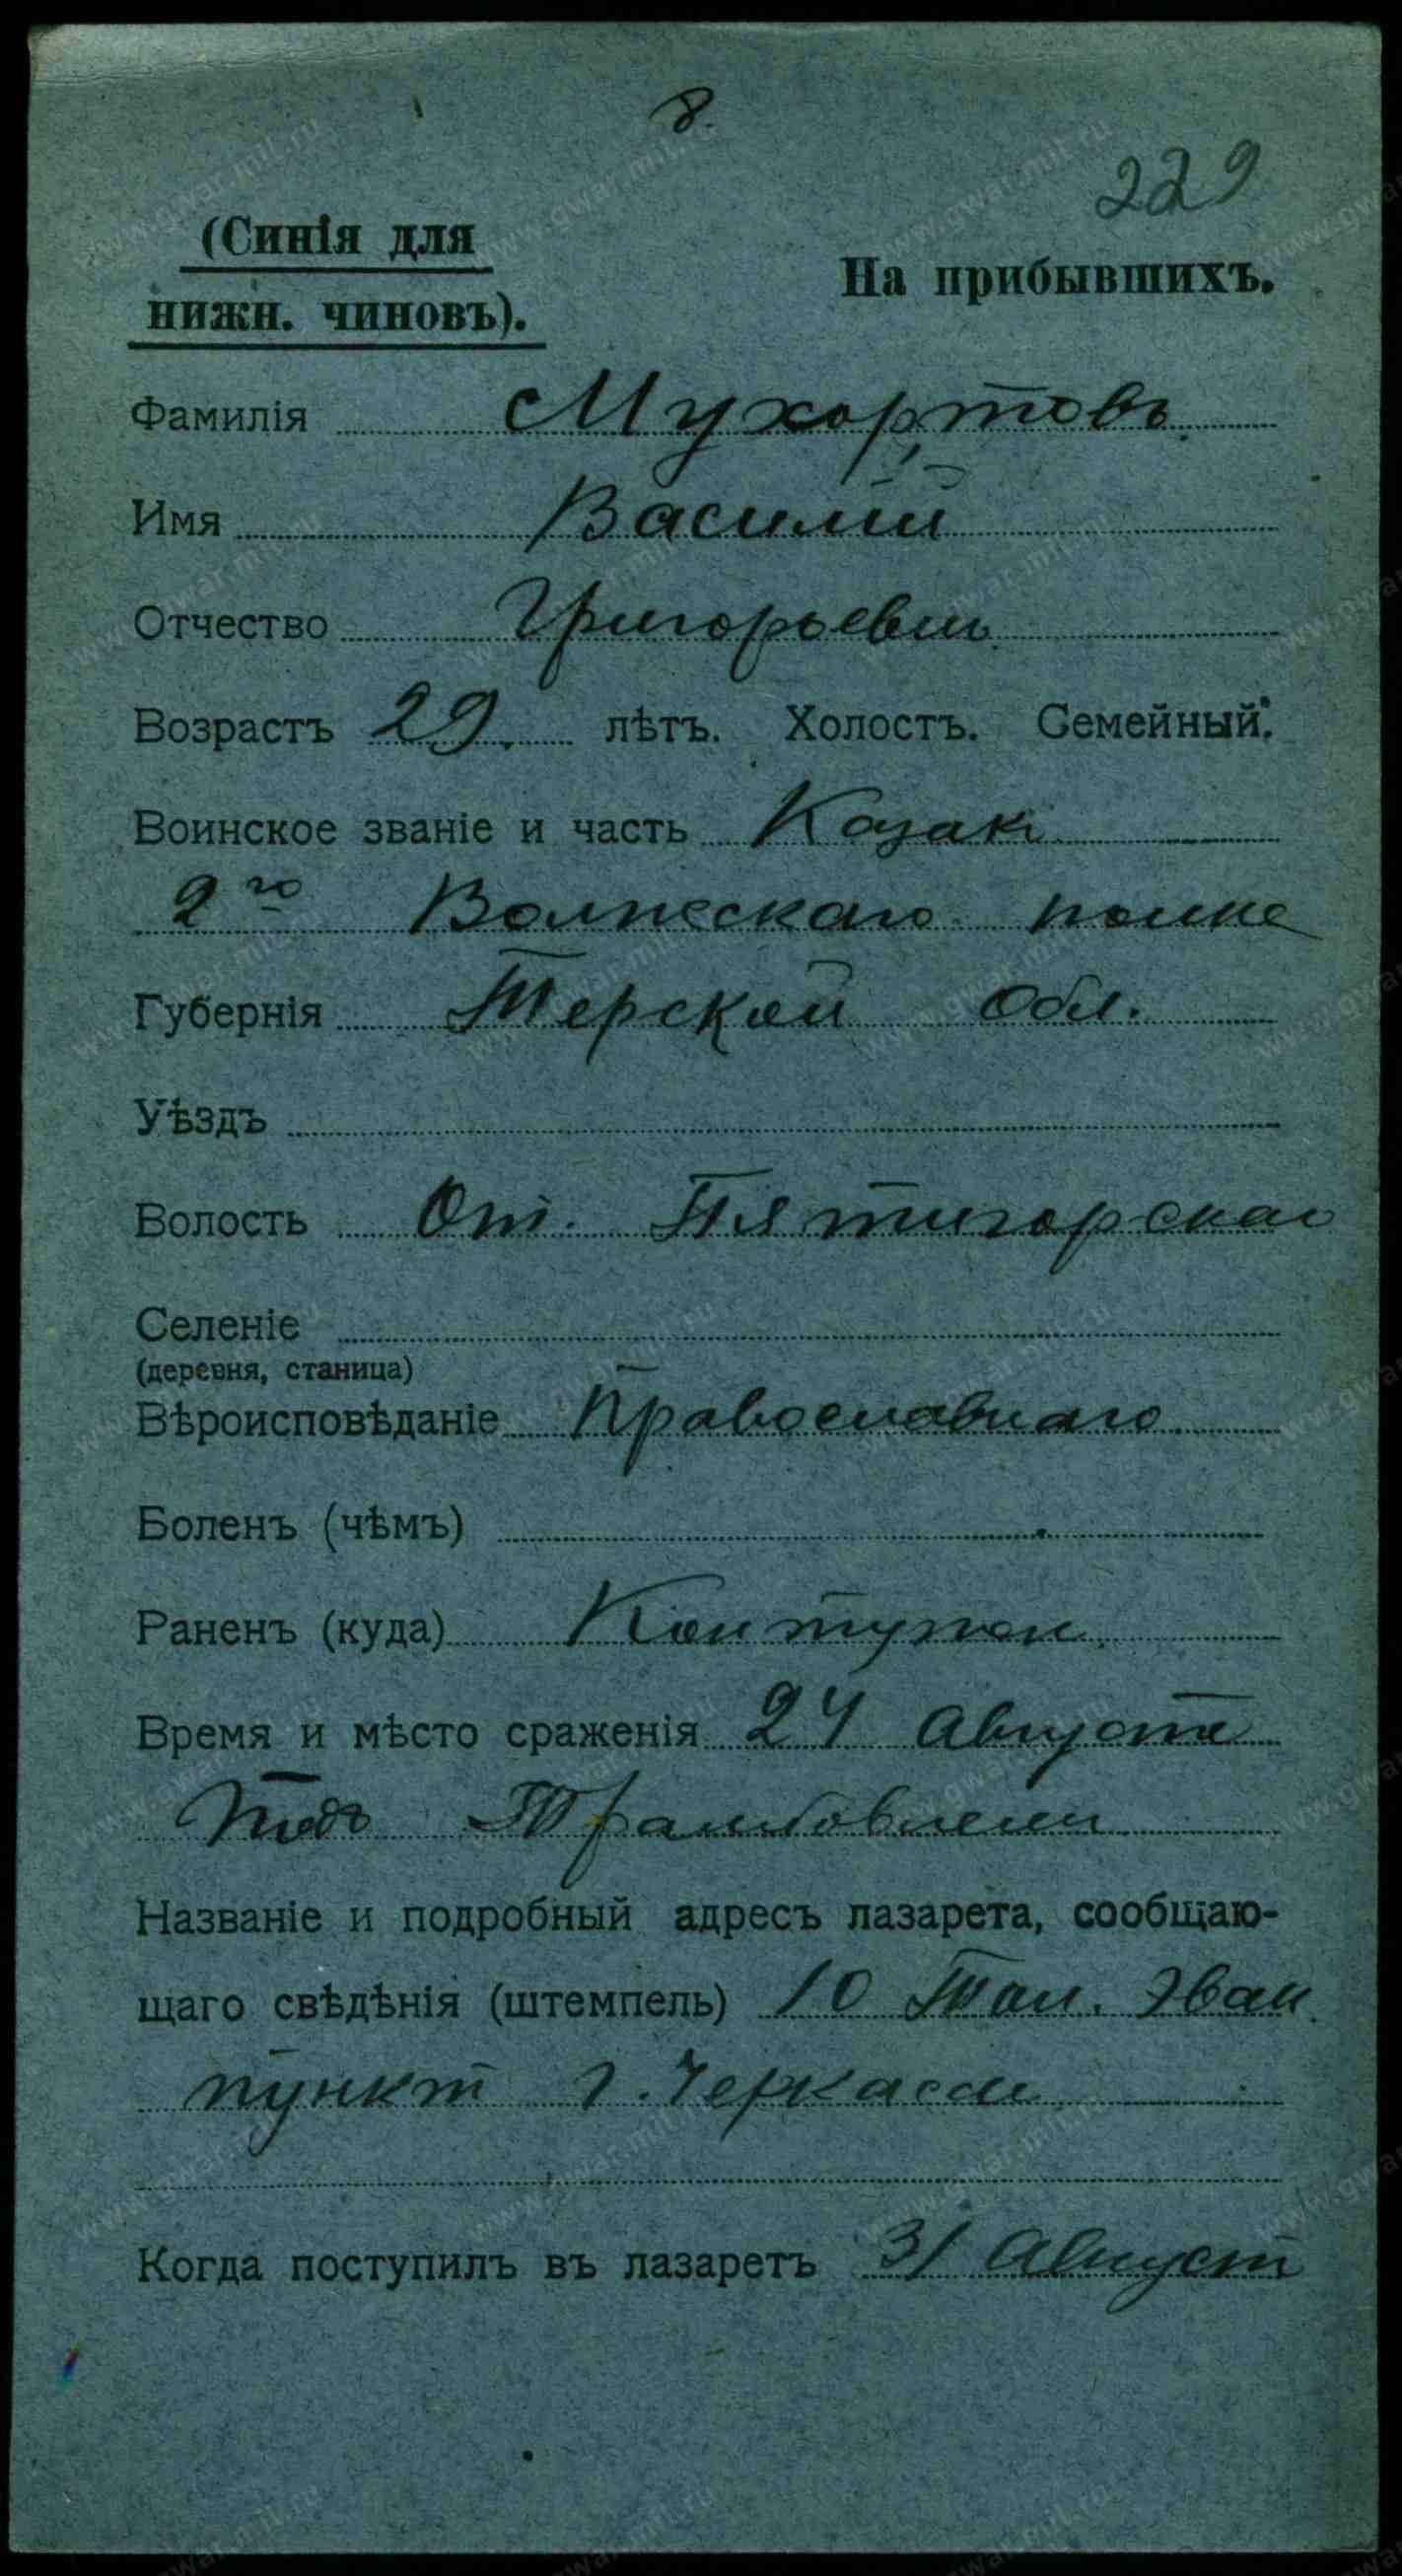 8.
229
(Синія для
нижн. чиновъ).
На прибывшихъ.
Фамилія Мухортовъ
Имя Василій
Отчество Григорьевич
Возрастъ 29 лѣтъ. Холостъ. Семейный.
Воинское званіе и часть Козакъ
2го Волжескаго полка
Губернія Терской Обл.
Уѣздъ
Волость От. Пятигорскаго
Селеніе
(деревня, станица)
Вѣроисповѣданіе Православнаго
Боленъ (чѣмъ)
Раненъ (куда) Контужен.
Время и мѣсто сраженія 24 Августа
подъ
Названіе и подробный адресъ лазарета, сообщаю-
щаго свѣдѣнія (штемпель) 10 Эвак.
пункт г. Черкасы
Когда поступилъ въ лазаретъ 31 Август
www.gwar.mil.ru